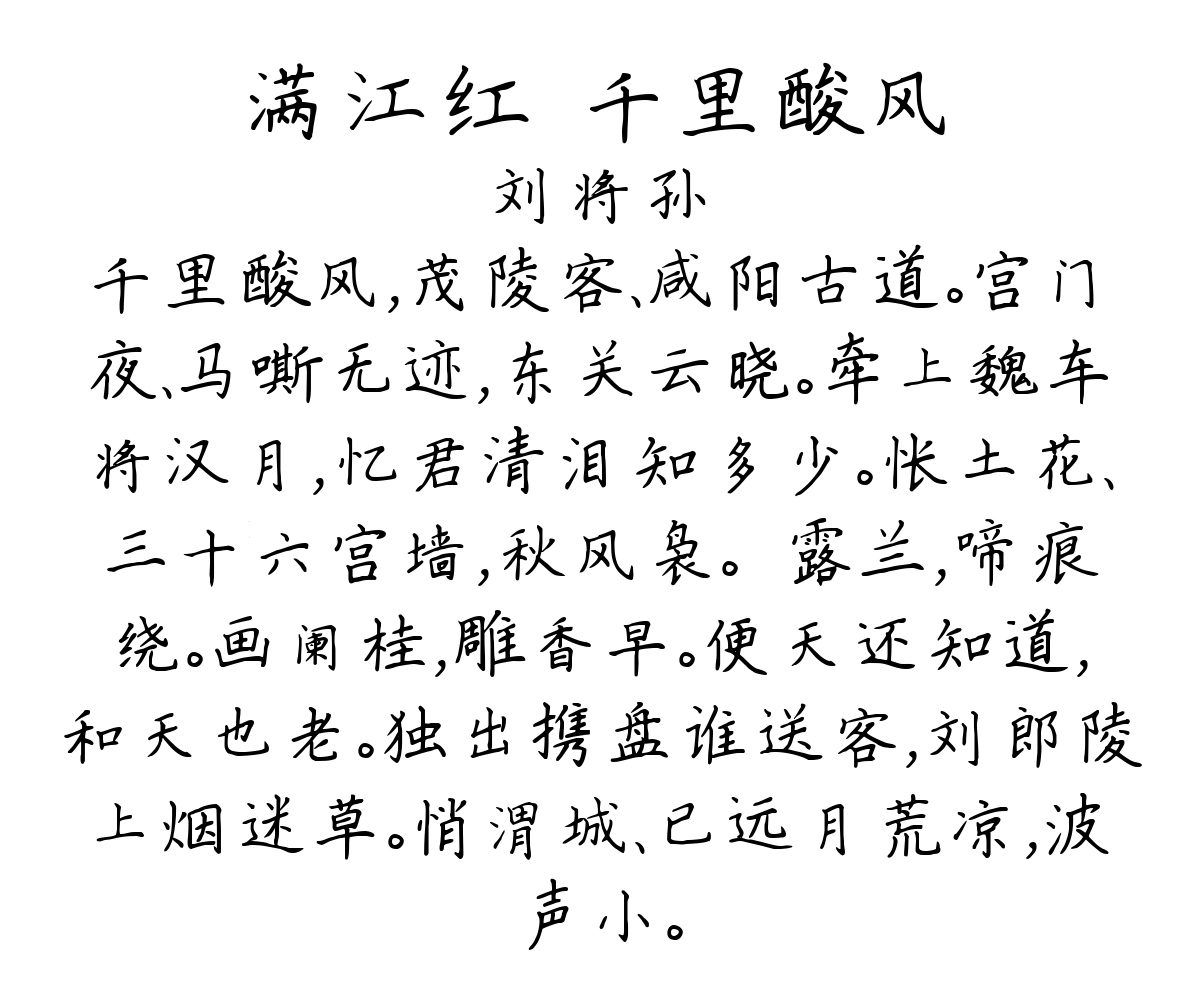 满江红 千里酸风
刘将孙
千里酸风,茂陵客、咸阳古道。宫门
夜、马嘶无迹,东关云晓。牵上魏车
将汉月,忆君清泪知多少。怅土花、
三十六宫墙,秋风袅。 露兰,啼痕
绕。画阑桂,雕香早。便天还知道,
和天也老。独出携盘谁送客,刘郎陵
上烟迷草。悄渭城、已远月荒凉,波
声小。